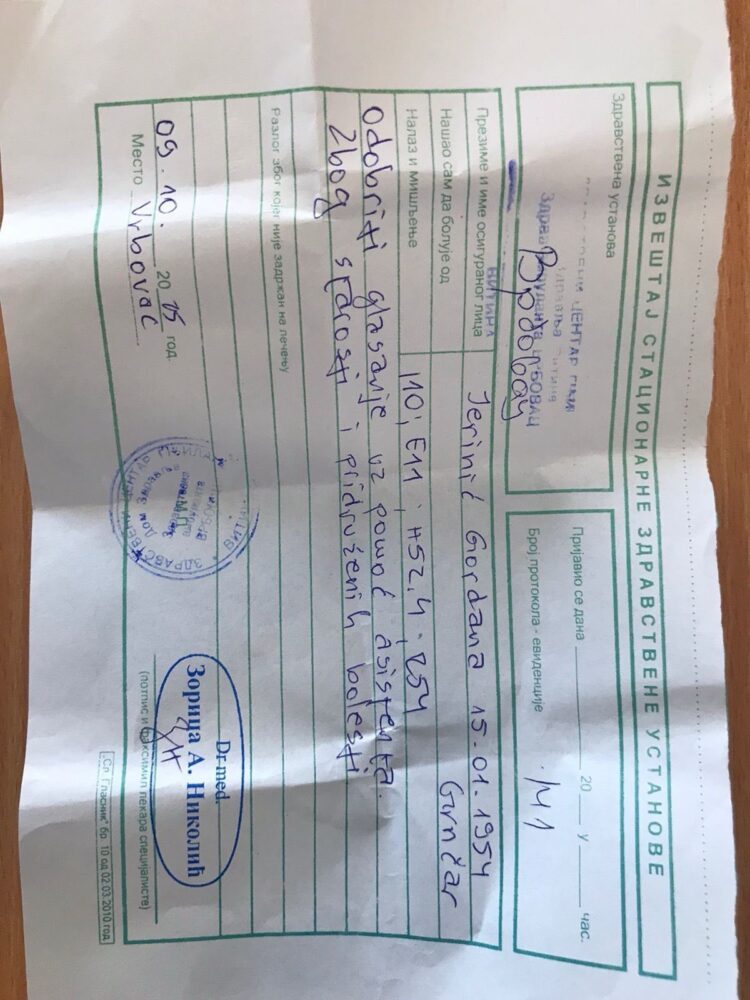 ИЗВЕШТАЈ СТАЦИОНАРНЕ ЗДРАВСТВЕНЕ УСТАНОВЕ
Здравствена установа
ЦЕНТАР
ВИТИНА
Врбовац
Пријавио се дана 20 у час.
Број протокола - евиденције 141
Презиме и име осигураног лица Jerinić Gordana 15.01.1954
Нашао сам да болује од Grnčar
Налаз и мишљење I10; E11; H52.4; R54
Odobriti glasanje uz pomoć asistenta
zbog starosti i pridruženih bolesti
Разлог због којег није задржан на лечењу
09.10. 20 25 год.
Место Vrbovac
М.П.
Dr med.
Зорица А. Николић
(потпис и факсимил лекара специјалисте)
„Ср. Гласник" бр. 10 од 02.03.2010 год.